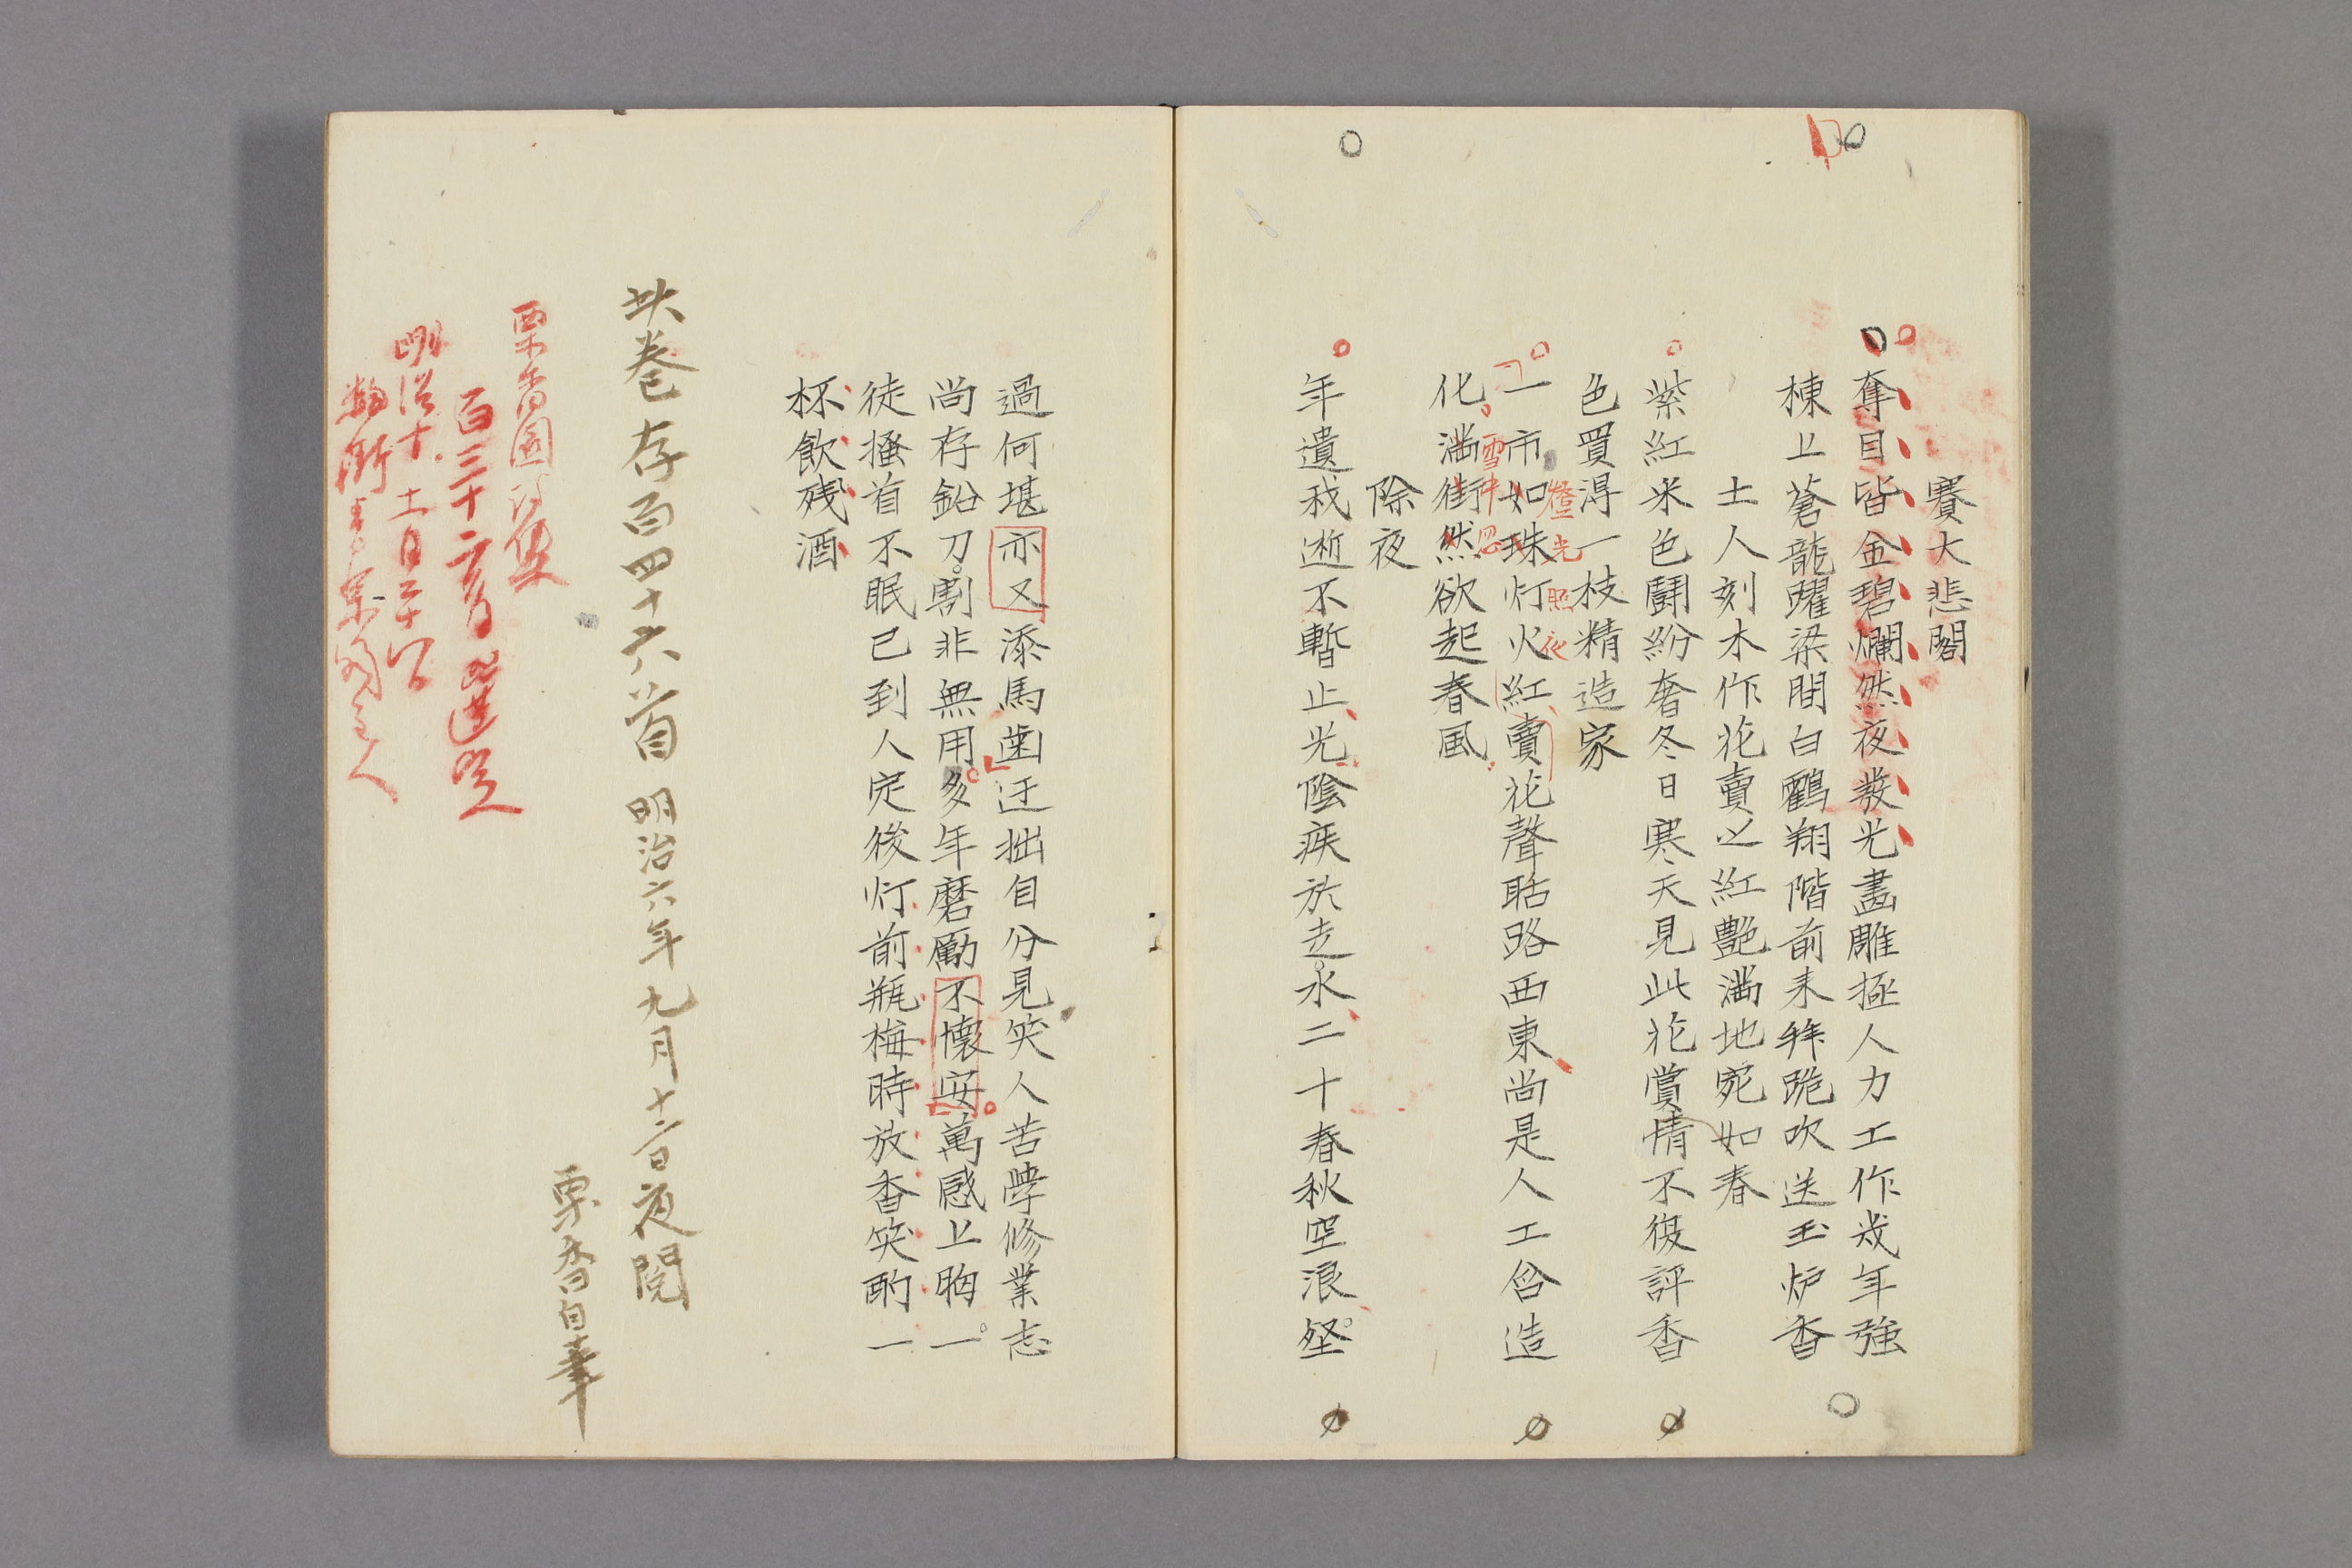 賽大悲閣
奪目皆金碧爛然夜發光畫雕極人力工作幾年強
棟上蒼龍躍梁間白鸖翔階前来拜跪吹送玉炉香
土人刻木作花賣之紅艷満地宛如春
紫紅米色鬪紛奢冬日寒天見此花賞情不復評香
色買得一枝精造家
燈光照夜
一市如珠灯火紅賣花聲聒路西東尚是人工含造
雪中忽
化満街然欲起春風
除夜
年遺我逝不暫止光陰疾於走水二十春秋空浪
過何堪亦又添馬歯迂拙自分見笑人苦學修業志
尚存鉛刀割非無用多年磨勵不懐安萬感上胸一
徒搔首不眠已到人定後灯前瓶梅時放香笑酌一
杯飲残酒
此巻存百四十六首 明治六年九月十二日夜閲
栗香自筆
栗香園詩集
百三十二首
明治十